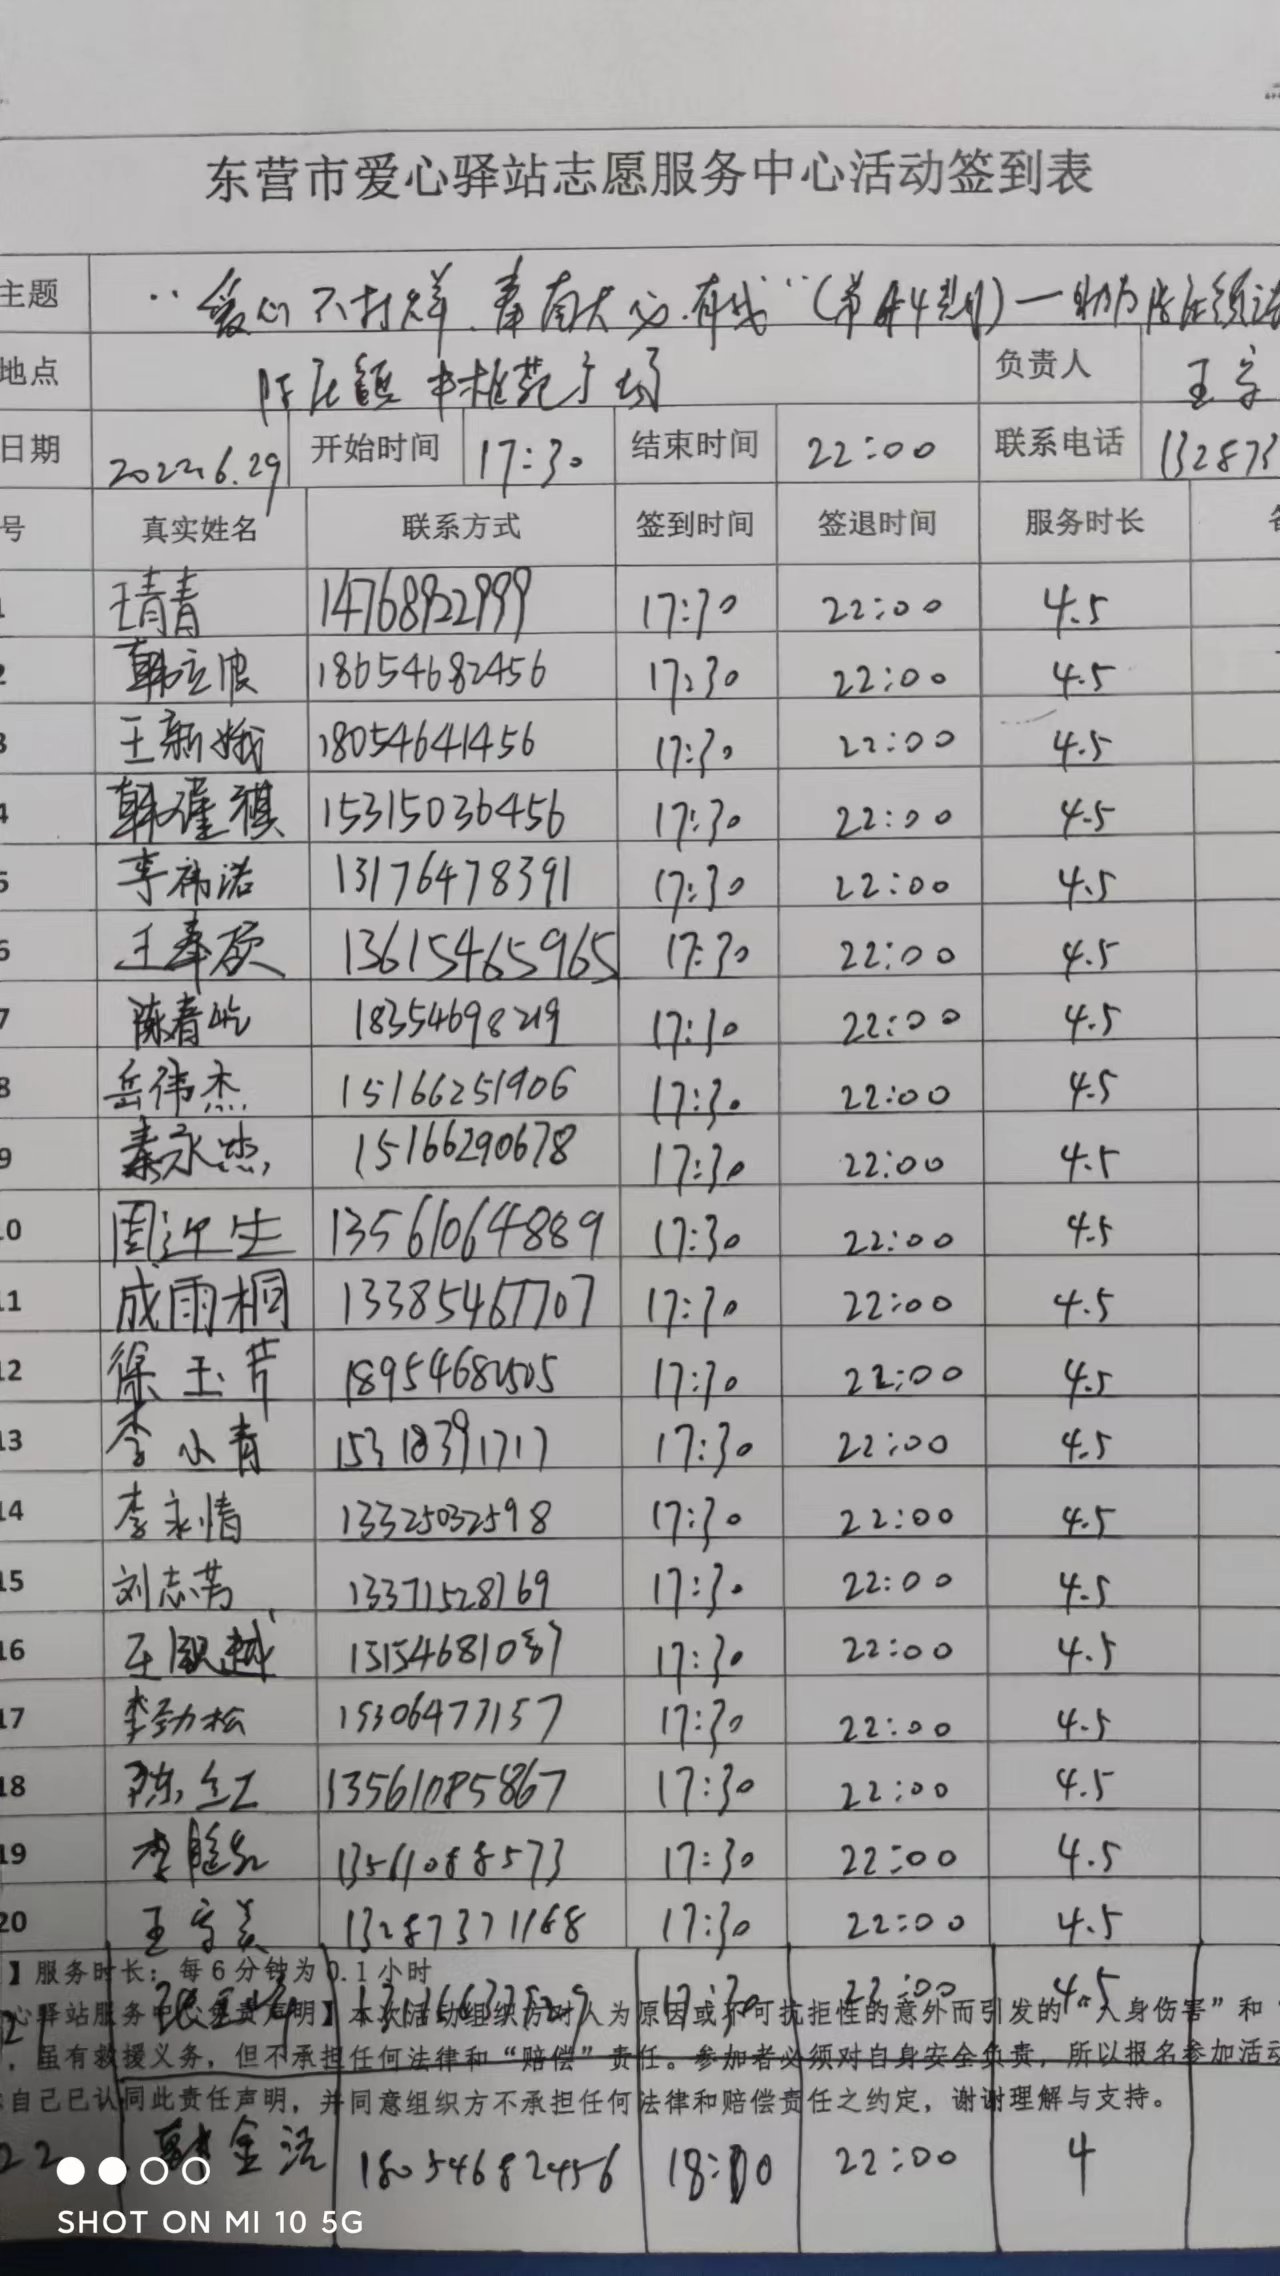 东营市爱心驿站志愿服务中心活动签到表
主题 “爱心不打烊 有 ”(第 4 期)一助力
地点 陈庄镇 苑广场 负责人 王守
日期 2022.6.29 开始时间 17:30 结束时间 22:00 联系电话 132873
号 真实姓名 联系方式 签到时间 签退时间 服务时长
1 王青青 14768922999 17:30 22:00 4.5
2 韩立波 18654682456 17:30 22:00 4.5
3 王新娥 18054641456 17:30 22:00 4.5
4 韩瑾祺 15315036456 17:30 22:00 4.5
5 李祎诺 13176478391 17:30 22:00 4.5
6 王奉 13615465965 17:30 22:00 4.5
7 陈春屹 18354698219 17:30 22:00 4.5
8 岳伟杰 15166251906 17:30 22:00 4.5
9 秦永杰 15166290678 17:30 22:00 4.5
10 周迎生 13561064889 17:30 22:00 4.5
11 成雨桐 13385467707 17:30 22:00 4.5
12 徐玉芹 18954682505 17:30 22:00 4.5
13 李小青 15318391717 17:30 22:00 4.5
14 李永情 13325032598 17:30 22:00 4.5
15 刘志芳 13371528769 17:30 22:00 4.5
16 王 越 15154681087 17:30 22:00 4.5
17 李劲松 15306477157 17:30 22:00 4.5
18 陈红 13561085867 17:30 22:00 4.5
19 李 13561088573 17:30 22:00 4.5
20 王守美 13287371168 17:30 22:00 4.5
】服务时长:每6分钟为0.1小时
21 17:30 22:00 4.5
心驿站服务中心免责声明】本次活动组织方对人为原因或不可抗拒性的意外而引发的“人身伤害”和“
,虽有救援义务,但不承担任何法律和“赔偿”责任。参加者必须对自身安全负责,所以报名参加活动
自己已认同此责任声明,并同意组织方不承担任何法律和赔偿责任之约定,谢谢理解与支持。
22 金浩 18054682456 18:00 22:00 4
SHOT ON MI 10 5G